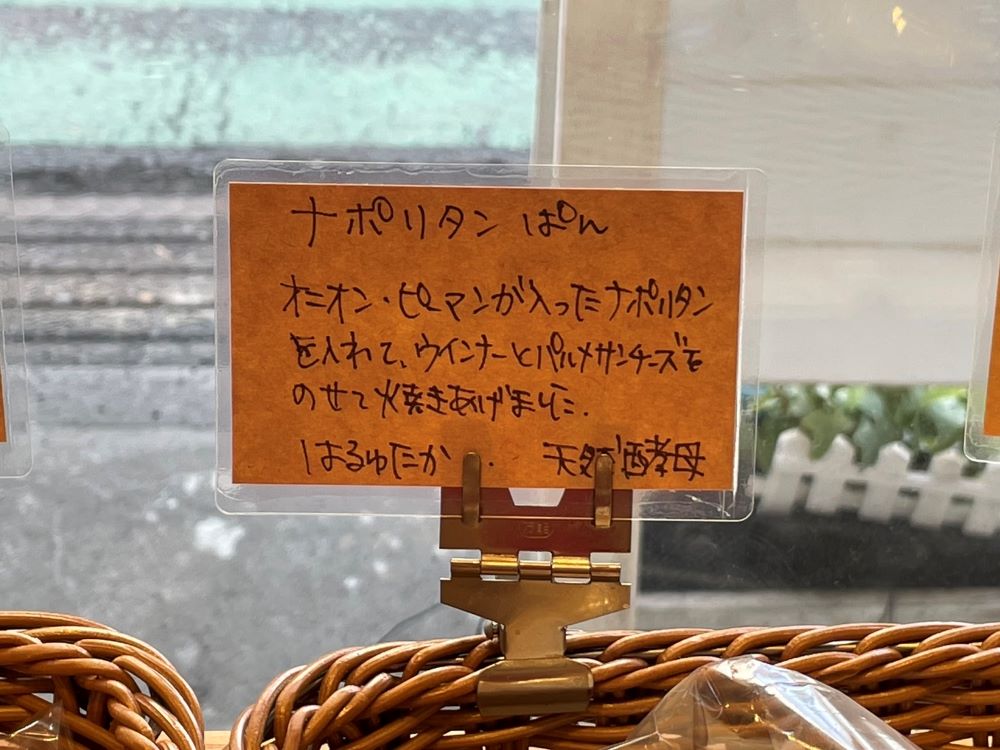 ナポリタン ぱん
オニオン・ピーマンが入ったナポリタン
を入れて、ウインナーとパルメザンチーズを
のせて焼きあげました.
はるゆたか・天然酵母